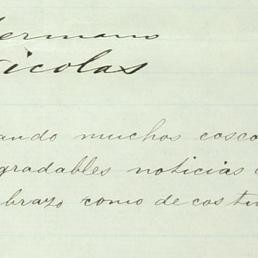 Hermano
Nicolas
ando muchos cosco
gradables noticias
brazo como de costu